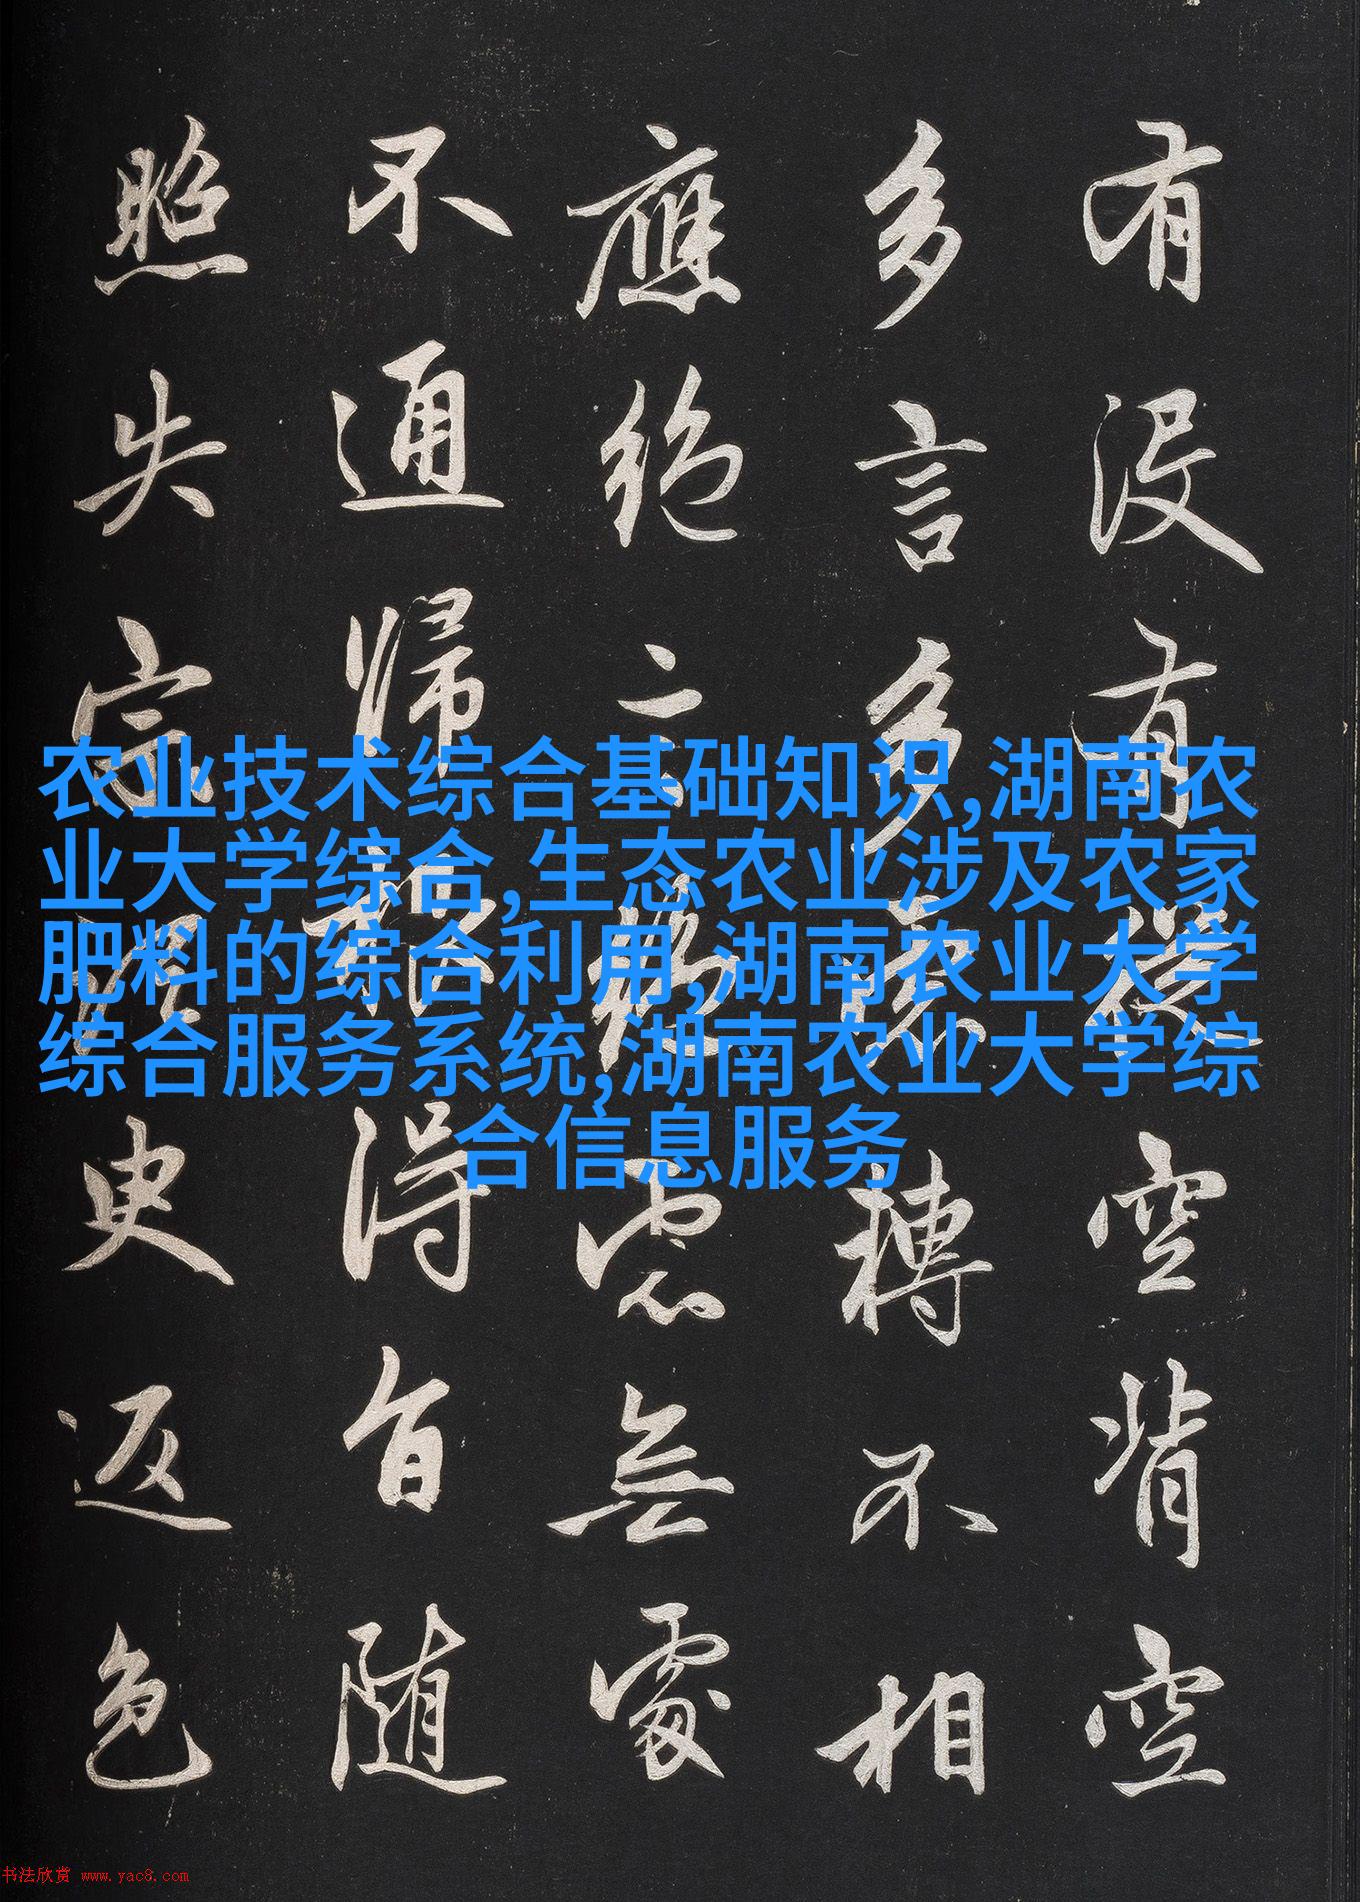 有没有從空背空
多言多慮轉不相
應絕言絕慮無處
不通歸根得旨隨
照失宗須臾返色
农业技术综合基础知识,湖南农
业大学综合,生态农业涉及农家
肥料的综合利用,湖南农业大学
综合服务系统,湖南农业大学综
合信息服务
书法欣赏 www.yac8.com